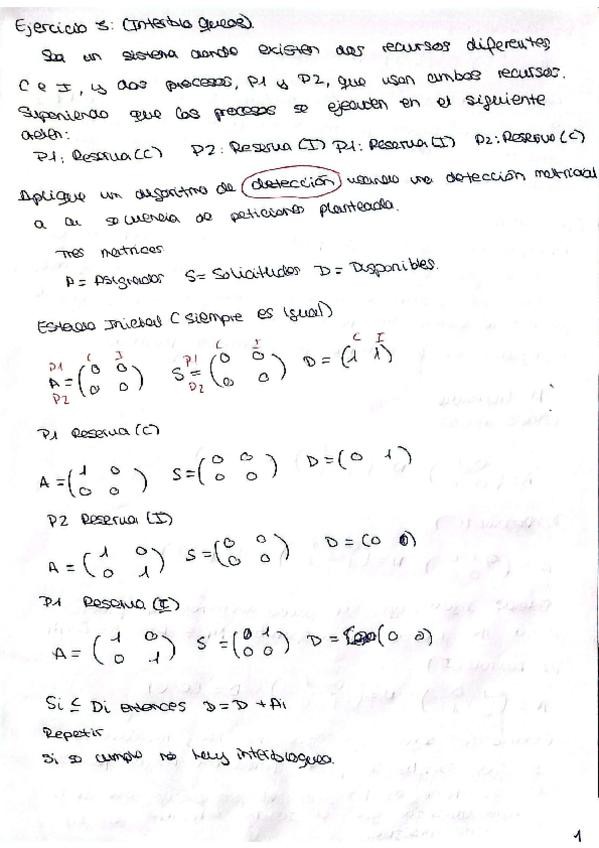 Ejercicio 3: (Interbloqueos).
Sea un sistema donde existen dos recursos diferentes
C e I, y dos procesos, P1 y P2, que usan ambos recursos.
Suponiendo que los procesos se ejecuten en el siguiente
orden:
P1: Reserva (C) P2: Reserva (I) P1: Reserva (I) P2: Reserva (C)
Aplique un algoritmo de detección usando una detección matricial
a la secuencia de peticiones planteada.
Tres matrices
A = Asignados S = Solicitudes D = Disponibles.
Estado Inicial (siempre es igual)
P1 C I P1 C I C I
A = (0 0 S = (0 0 D = (1 1)
P2 0 0) P2 0 0)
P1 Reserva (C)
A = (1 0 S = (0 0 D = (0 1)
0 0) 0 0)
P2 Reserva (I)
A = (1 0 S = (0 0 D = (0 0)
0 1) 0 0)
P1 Reserva (I)
A = (1 0 S = (0 1 D = (0 0)
0 1) 0 0)
Si ≤ Di entonces D = D + Ai
Repetir
Si se cumple no hay interbloqueo.
1